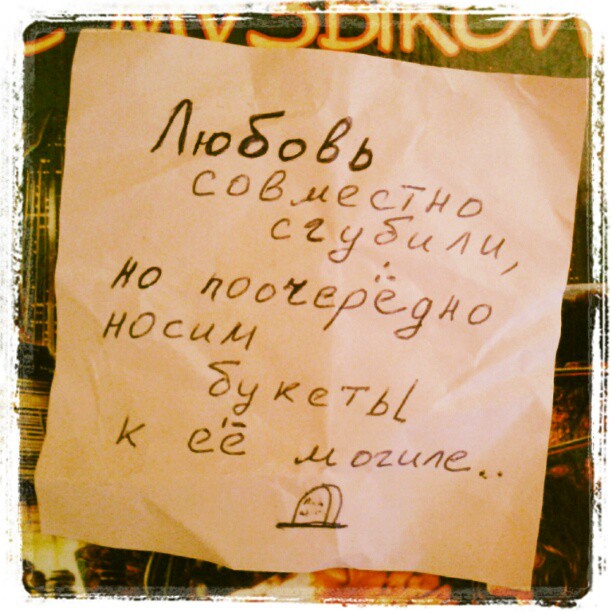 с музыкой
Любовь
совместно
сгубили,
но поочерёдно
носим
букеты
к её могиле..